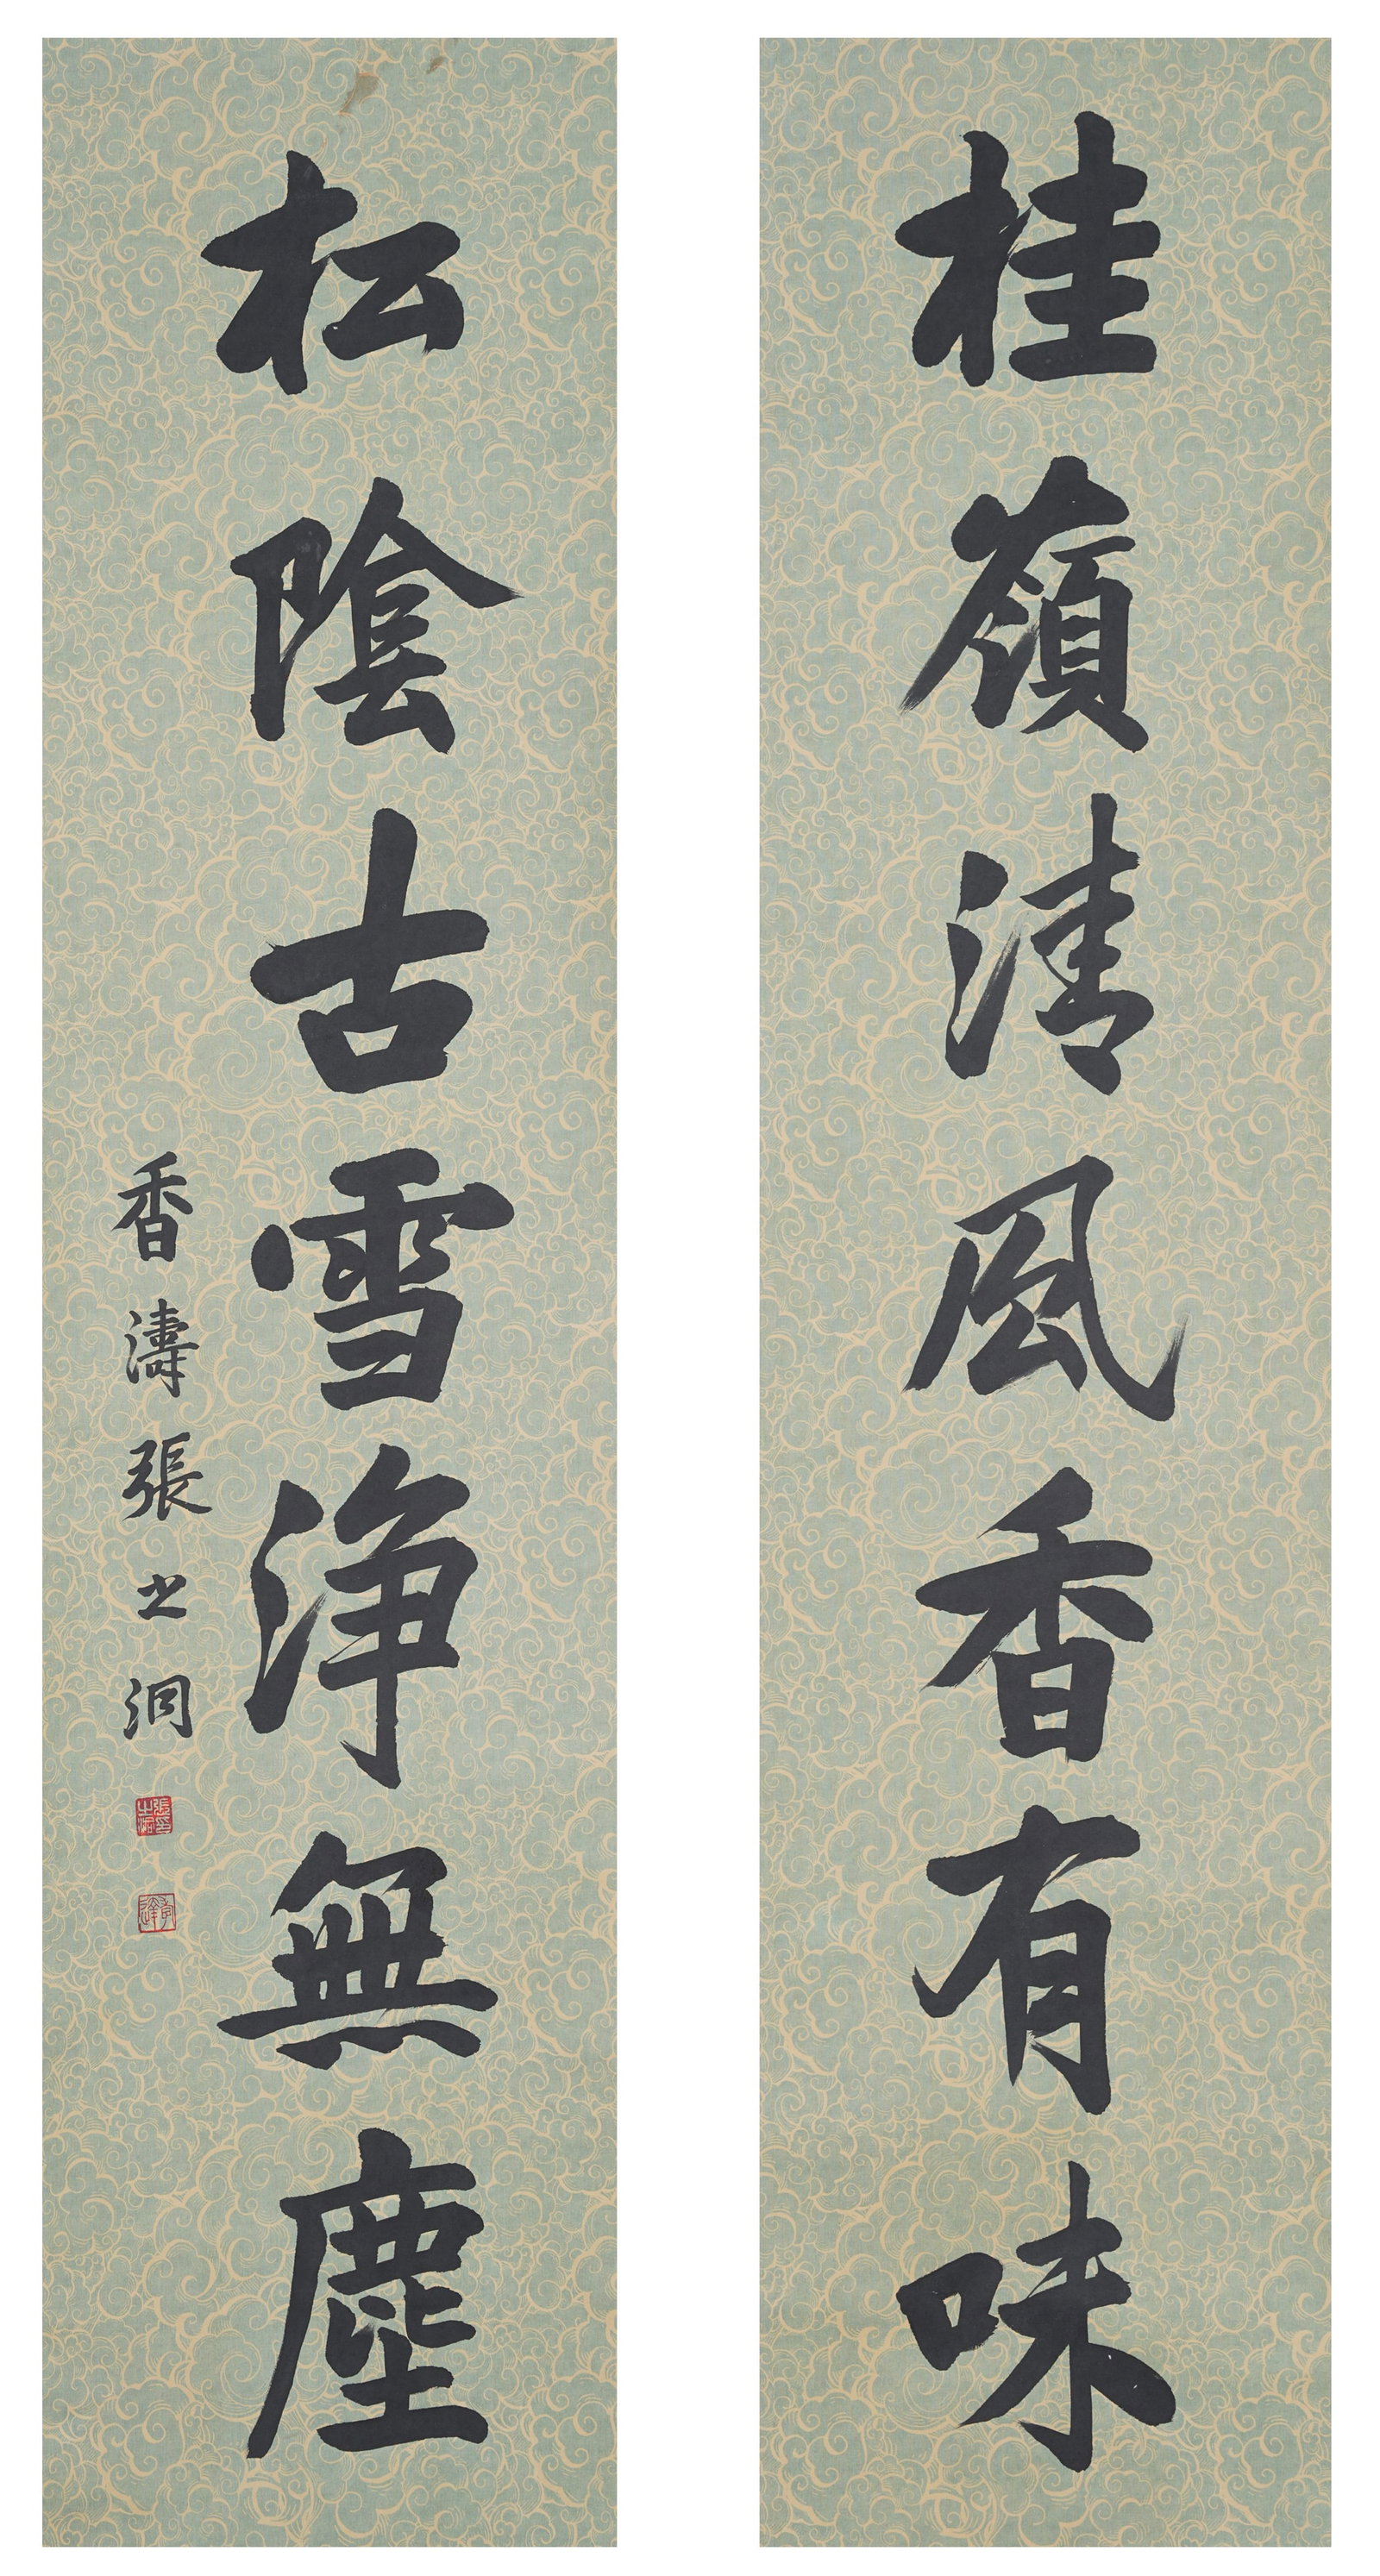 桂嶺清風香有味
松陰古雪淨無塵
香濤張之洞